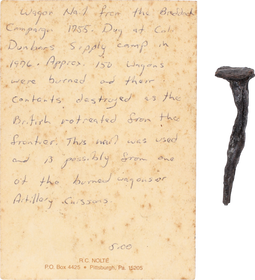 Wagon Nail from the Braddock
Campaign 1755. Dug at Col.
Dunbars supply camp in
1976. Approx. 150 wagons
were burned and their
contents destroyed as the
British retreated from the
frontier. This nail was used
and is possibly from one
of the burned wagons or
Artillery Caissons
5.00
H.C. NOLTE
P.O. Box 4425 • Pittsburgh, Pa. 15205